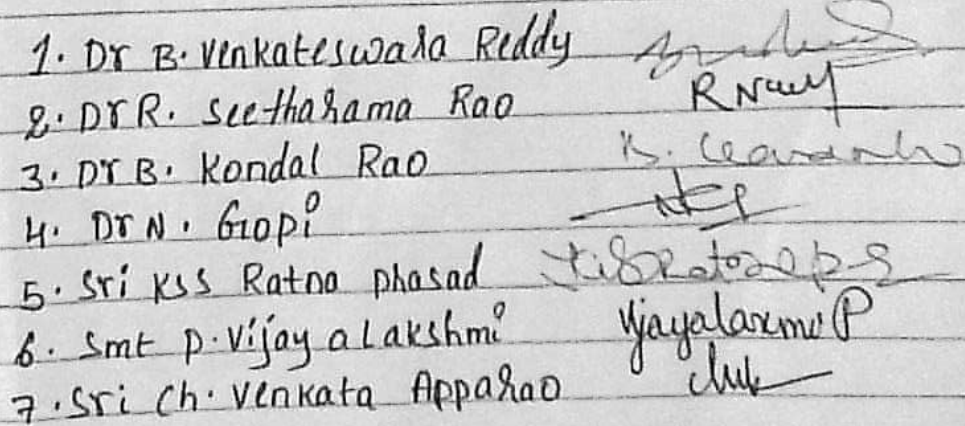 1. Dr B. Venkateswara Reddy
2. Dr R. Seetharama Rao
3. Dr B. Kondal Rao
4. Dr N. Gopi
5. Sri KSS Ratna Prasad
6. Smt P. Vijayalakshmi Vijayalaxmi P
7. Sri Ch. Venkata Apparao